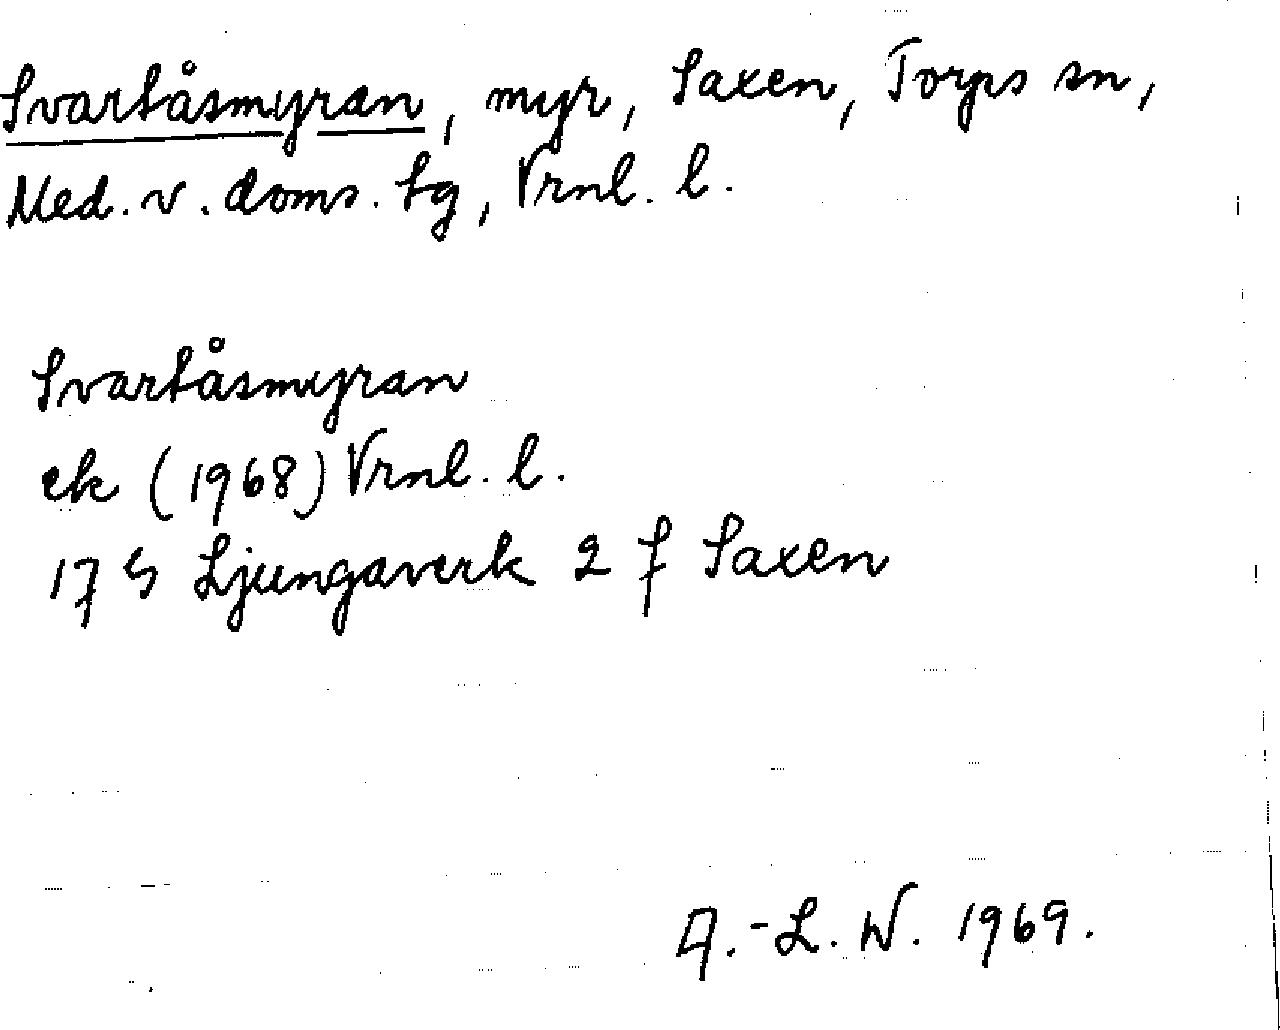 Svartåsmyran, myr, Saxen, Torps sn,
Med. v. doms. tg, Vrnl. l.
Svartåsmyran
ek (1968) Vrnl. l.
17 G Ljungaverk 2 f Saxen
A.-L. W. 1969.